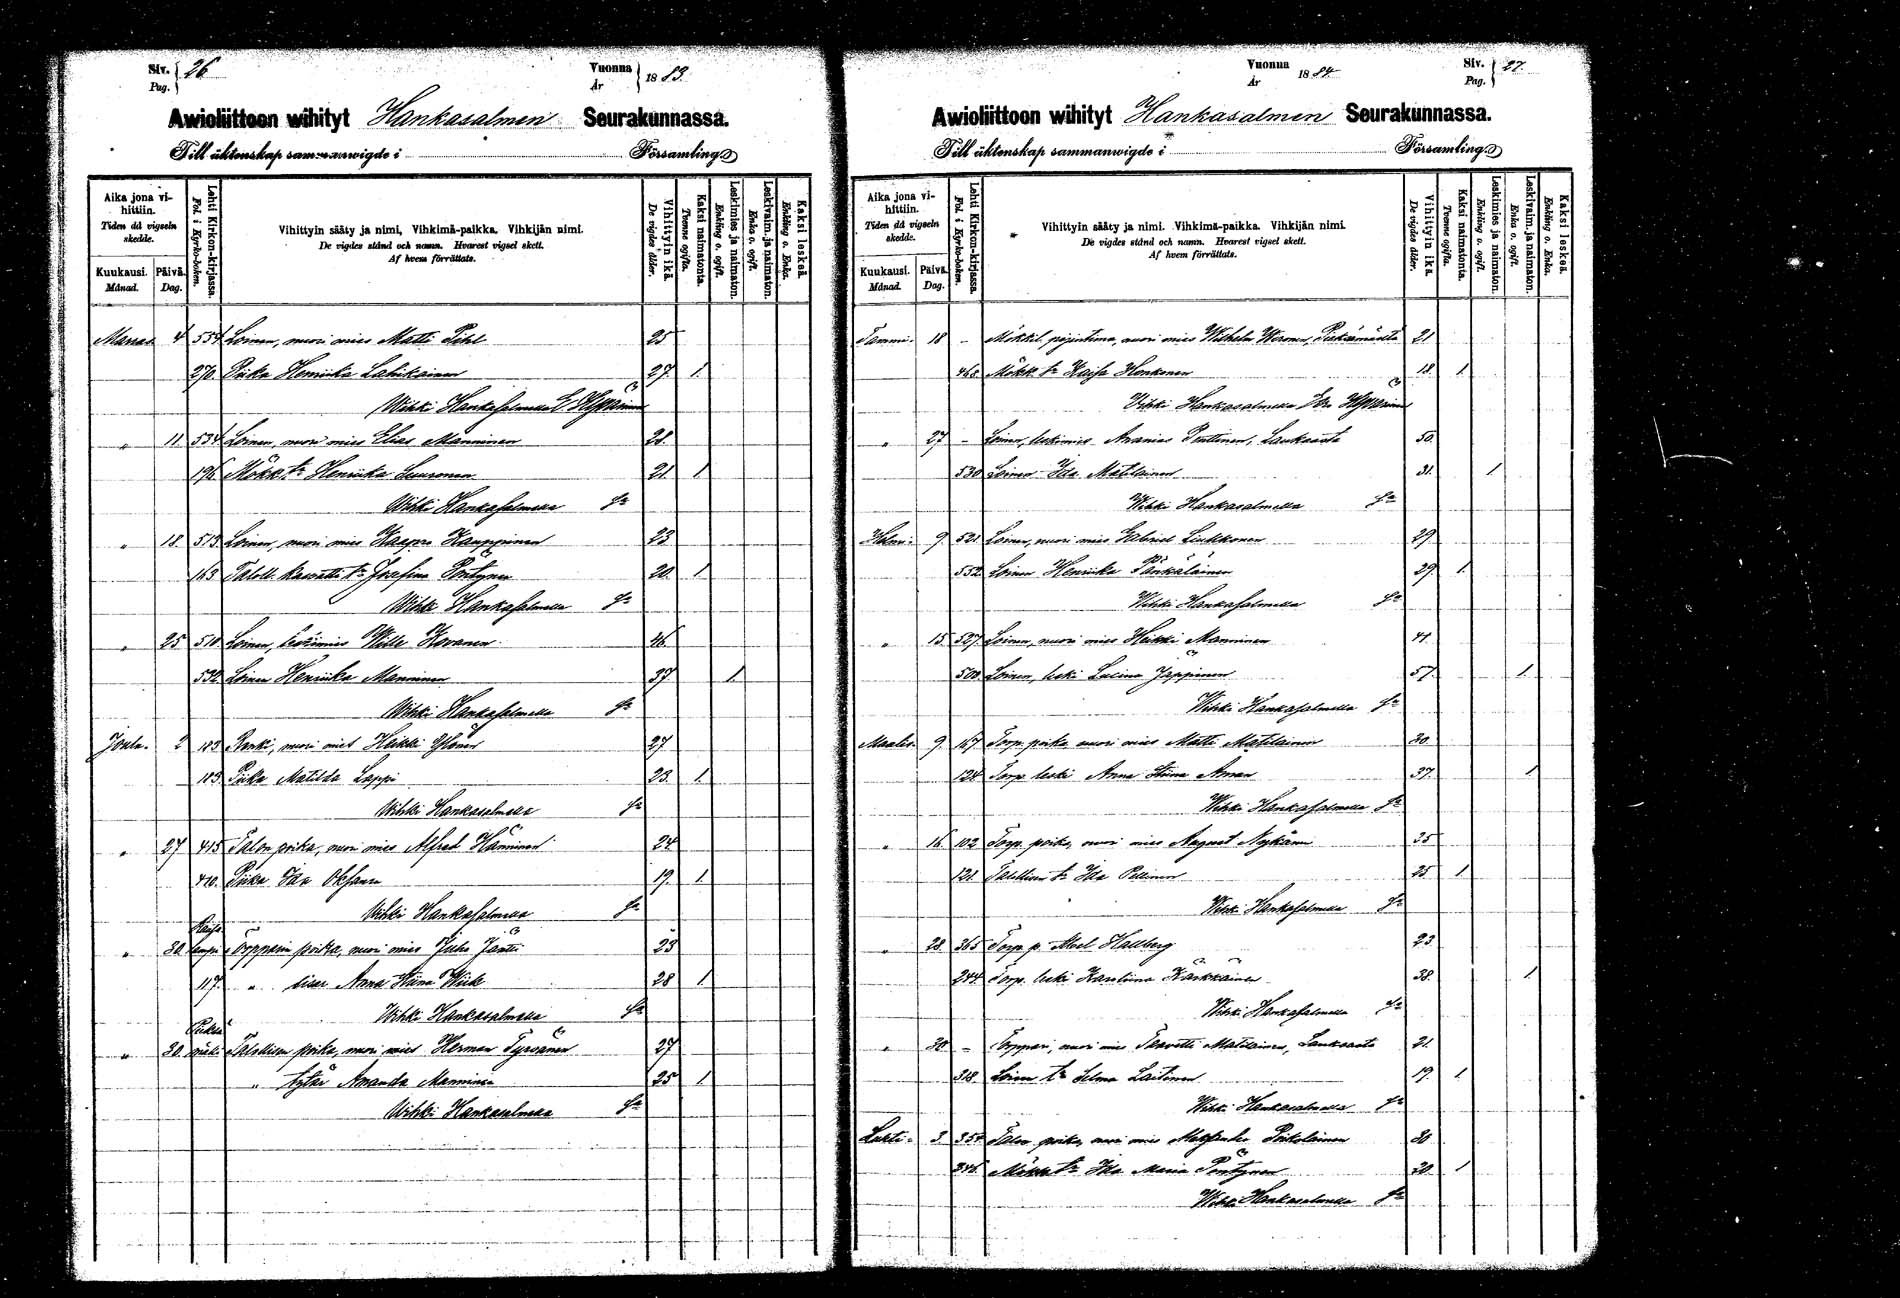 Siv. Pag. 26
Vuonna År 1883.
Awioliittoon wihityt Hankasalmen Seurakunnassa.
Till äktenskap sammanwigde i Församling.
Aika jona vihittiin. Tiden då vigseln skedde.
Kuukausi. Månad.
Päivä. Dag.
Lehti Kirkon-kirjassa. Fol. i Kyrko-boken.
Vihittyin sääty ja nimi, Vihkimä-paikka. Vihkijän nimi.
De vigdes stånd och namn. Hvarest vigsel skett.
Af hvem förrättats.
Vihittyin ikä. De vigdes ålder.
Kaksi naimatonta. Tvenne ogifta.
Leskimies ja naimaton. Enkling o. ogift.
Leskivaim. ja naimaton. Enka o. ogift.
Kaksi leskeä. Enkling o. Enka.
Marras. 4 554 Loinen, nuori mies Matti Pihl 25
270. Piika Henriika Lahikainen 27. 1.
Wihki Hankasalmella
" 11. 534 Loinen, nuori mies Elias Manninen 28.
196. Mökk. tr Henriika Luuronen 21. 1.
Wihki Hankasalmella
" 18. 513. Loinen, nuori mies Kaspar Kauppinen 23
163 Taloll. kasvatti tr Josefina Pöntynen 20. 1.
Wihki Hankasalmella
" 25 510. Loinen, leskimies Wille Kovanen 46.
532. Loinen Henriika Manninen 37 1.
Wihki Hankasalmella
Joulu. 2 183 Renki, nuori mies Heikki Ylönen 27
189. Piika Matilda Lappi 23. 1.
Wihki Hankasalmella
" 27 415 Talon poika, nuori mies Alfred Hänninen 24.
420. Piika Ida Oksanen 19. 1.
Wihki Hankasalmella
" 30. Torpparin poika, nuori mies Juho Jäntti 23
117. " Anna Stiina Wiik 28 1.
Wihki Hankasalmella
" 30. Pieksämäki Talollisen poika, nuori mies Herman Tyrväinen 27
" tytär Amanda Manninen 25 1.
Wihki Hankasalmella
Vuonna År 1884
Siv. Pag. 27.
Awioliittoon wihityt Hankasalmen Seurakunnassa.
Till äktenskap sammanwigde i Församling.
Aika jona vihittiin. Tiden då vigseln skedde.
Kuukausi. Månad.
Päivä. Dag.
Lehti Kirkon-kirjassa. Fol. i Kyrko-boken.
Vihittyin sääty ja nimi. Vihkimä-paikka. Vihkijän nimi.
De vigdes stånd och namn. Hvarest vigsel skett.
Af hvem förrättats.
Vihittyin ikä. De vigdes ålder.
Kaksi naimatonta. Tvenne ogifta.
Leskimies ja naimaton. Enkling o. ogift.
Leskivaim. ja naimaton. Enka o. ogift.
Kaksi leskeä. Enkling o. Enka.
Tammi. 18 - nuori mies Wilhelm Pieksämäeltä 21
468. Mökk. tr Kaisa Honkonen 18. 1
Vihki Hankasalmella
" 27 - Loinen, leskimies Ananias Penttinen, Laukaasta 50.
530 Loinen Ida Matilainen 31. 1
Wihki Hankasalmella
Helmi. 9. 521. Loinen, nuori mies Gabriel Liukkonen 29
532. Loinen Henriika Pänkäläinen 29. 1.
Wihki Hankasalmella
" 15. 527. Loinen, nuori mies Heikki Manninen 41
508. Loinen, leski Lucina Jäppinen 57. 1.
Wihki Hankasalmella
Maalis. 9. 167 Torp. poika, nuori mies Matti Matilainen 30.
124 Torp. leski Anna Stiina 37. 1
Wihki Hankasalmella
" 16. 102 Torp. poika, nuori mies August Nykänen 35
121. Talollisen tr Ida Pellinen 25. 1
Wihki Hankasalmella
" 28. 365 Torp. p. Abel Hallberg 23.
244. Torp. leski Karoliina Kärkkäinen 38. 1
Wihki Hankasalmella
" 30. - Torppari, nuori mies Taavetti Matilainen, Laukaasta 21.
318. Loisen tr Selma Laitinen 19. 1.
Wihki Hankasalmella
Huhti. 3. 354. Talon poika, nuori mies Aleksander Poikolainen 30
346. Mökk. tr Ida Maria Pöntynen 20. 1
Wihki Hankasalmella